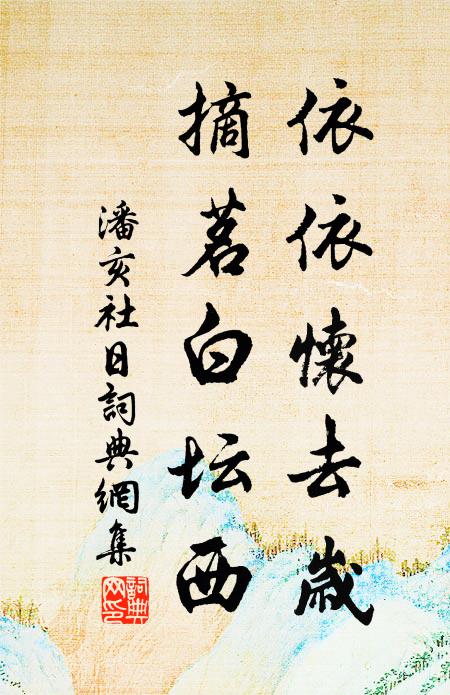 依依懷去歲
摘茗白坛西
潘亥社日詞典網集
詞典
网印